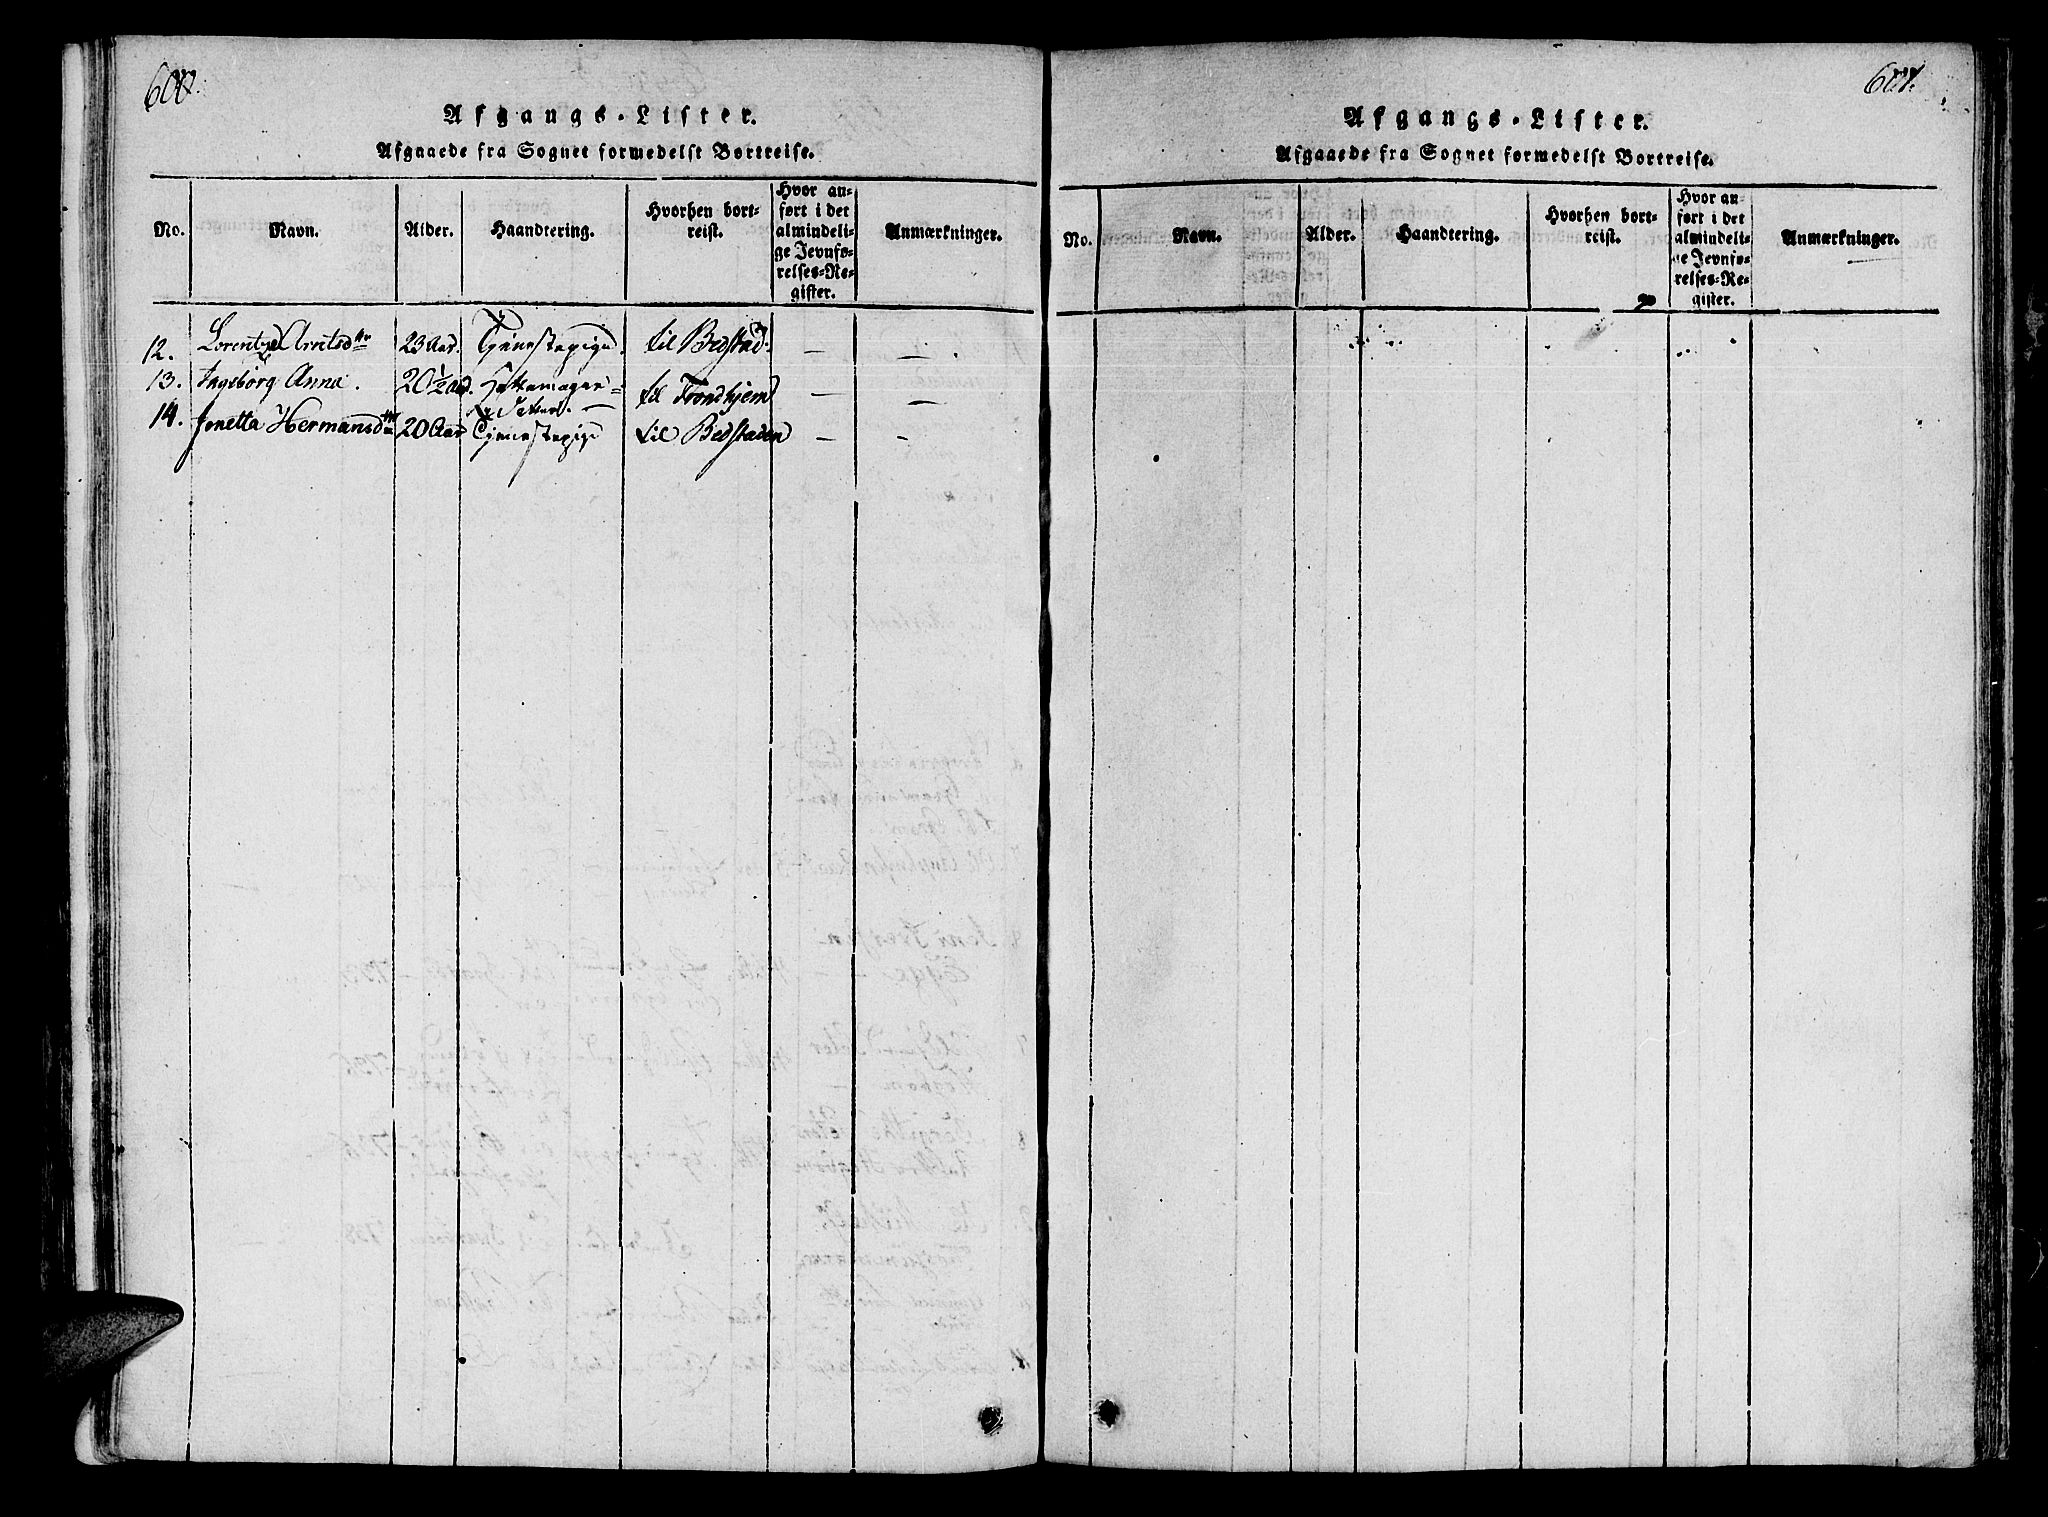 600.
Afgangs-Lister.
Afgaaede fra Sognet formedelst Bortreise.
No. Navn. Alder. Haandtering. Hvorhen bortreist. Hvor anført i det almindelige Jevnførelses-Register. Anmærkninger.
12. Lorentze Arntsdtr 23 Aar. Tjenestepige. til Bedstad. — —
13. Ingebörg Anna. 20½ Aar. Hattemager= til Trondhjem — —
Datter. —
14. Jonetta Hermansdtr 20 Aar Tjenestepige til Bedstaden — —
601.
Afgangs-Lister.
Afgaaede fra Sognet formedelst Bortreise.
No. Navn. Alder. Haandtering. Hvorhen bortreist. Hvor anført i det almindelige Jevnførelses-Register. Anmærkninger.